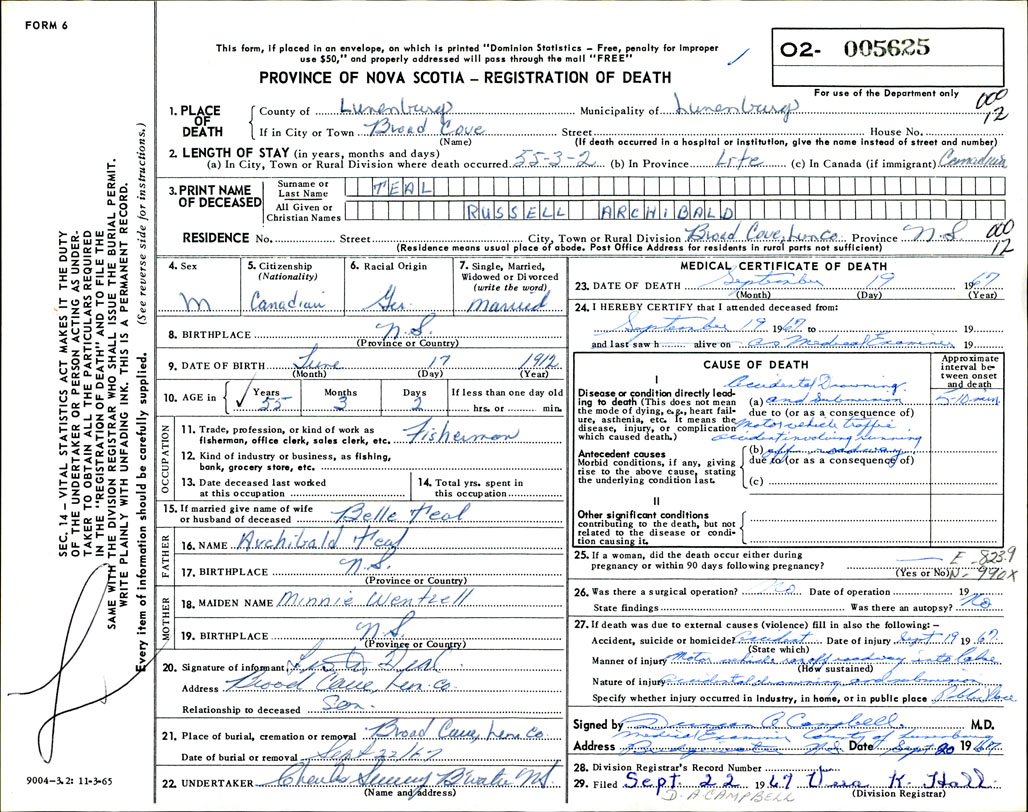 FORM 6
This form, if placed in an envelope, on which is printed "Dominion Statistics – Free, penalty for improper
use $50," and properly addressed will pass through the mail "FREE"
O2- 005625
PROVINCE OF NOVA SCOTIA – REGISTRATION OF DEATH
For use of the Department only
000
12
1. PLACE OF DEATH
County of Lunenburg Municipality of Lunenburg
If in City or Town Broad Cove Street House No.
(Name) (If death occurred in a hospital or institution, give the name instead of street and number)
2. LENGTH OF STAY (in years, months and days)
(a) In City, Town or Rural Division where death occurred 55-3-2 (b) In Province Life (c) In Canada (if immigrant) Canadian
3. PRINT NAME OF DECEASED
Surname or Last Name TEAL
All Given or Christian Names RUSSELL ARCHIBALD
RESIDENCE No. Street City, Town or Rural Division Broad Cove, Lun. Co. Province N.S. 000
12
(Residence means usual place of abode. Post Office Address for residents in rural parts not sufficient)
4. Sex M
5. Citizenship (Nationality) Canadian
6. Racial Origin Ger.
7. Single, Married, Widowed or Divorced (write the word) Married
8. BIRTHPLACE N.S.
(Province or Country)
9. DATE OF BIRTH June 17 1912
(Month) (Day) (Year)
10. AGE in Years 55 Months 3 Days 2 If less than one day old hrs. or min.
OCCUPATION
11. Trade, profession or kind of work as
fisherman, office clerk, sales clerk, etc. Fisherman
12. Kind of industry or business, as fishing,
bank, grocery store, etc.
13. Date deceased last worked
at this occupation
14. Total yrs. spent in
this occupation
15. If married give name of wife
or husband of deceased Belle Teal
FATHER
16. NAME Archibald Teal
17. BIRTHPLACE N.S.
(Province or Country)
MOTHER
18. MAIDEN NAME Minnie Wentzell
19. BIRTHPLACE N.S.
(Province or Country)
20. Signature of informant
Address Broad Cove, Lun. Co.
Relationship to deceased Son
21. Place of burial, cremation or removal Broad Cove, Lun. Co.
Date of burial or removal Sept 22/67
22. UNDERTAKER Charles
(Name and address)
MEDICAL CERTIFICATE OF DEATH
23. DATE OF DEATH September 19 1967
(Month) (Day) (Year)
24. I HEREBY CERTIFY that I attended deceased from:
September 19 1967 to 19
and last saw h alive on as Medical Examiner 19
CAUSE OF DEATH
Approximate interval between onset and death
I
Disease or condition directly leading to death (This does not mean the mode of dying, e.g., heart failure, asthenia, etc. It means the disease, injury, or complication which caused death.)
Accidental Drowning
(a) and Submersion 5-10 min
due to (or as a consequence of)
Motor vehicle traffic
accident involving running
Antecedent causes
Morbid conditions, if any, giving rise to the above cause, stating the underlying condition last.
(b) off roadway
due to (or as a consequence of)
(c)
II
Other significant conditions
contributing to the death, but not related to the disease or condition causing it.
25. If a woman, did the death occur either during
pregnancy or within 90 days following pregnancy? E-823.9
(Yes or No) N-990X
26. Was there a surgical operation? No Date of operation 19
State findings Was there an autopsy? No
27. If death was due to external causes (violence) fill in also the following: –
Accident, suicide or homicide? Accident Date of injury Sept 19 1967
(State which)
Manner of injury Motor vehicle ran off roadway into Lake
(How sustained)
Nature of injury accidental drowning and submersion
Specify whether injury occurred in Industry, in home, or in public place Public Place
Signed by Duncan Campbell M.D.
Medical Examiner County of Lunenburg
Address N.S. Date Sept. 20 1967
28. Division Registrar's Record Number
29. Filed Sept. 22 1967 Vera K. Hall
(Division Registrar)
D. A. CAMPBELL
SEC. 14 – VITAL STATISTICS ACT MAKES IT THE DUTY
OF THE UNDERTAKER OR PERSON ACTING AS UNDER-
TAKER TO OBTAIN ALL THE PARTICULARS REQUIRED
IN THE "REGISTRATION OF DEATH" AND TO FILE THE
SAME WITH THE DIVISION REGISTRAR WHO SHALL ISSUE THE BURIAL PERMIT.
WRITE PLAINLY WITH UNFADING INK. THIS IS A PERMANENT RECORD.
Every item of information should be carefully supplied. (See reverse side for instructions.)
9004–3.2: 11-3-65